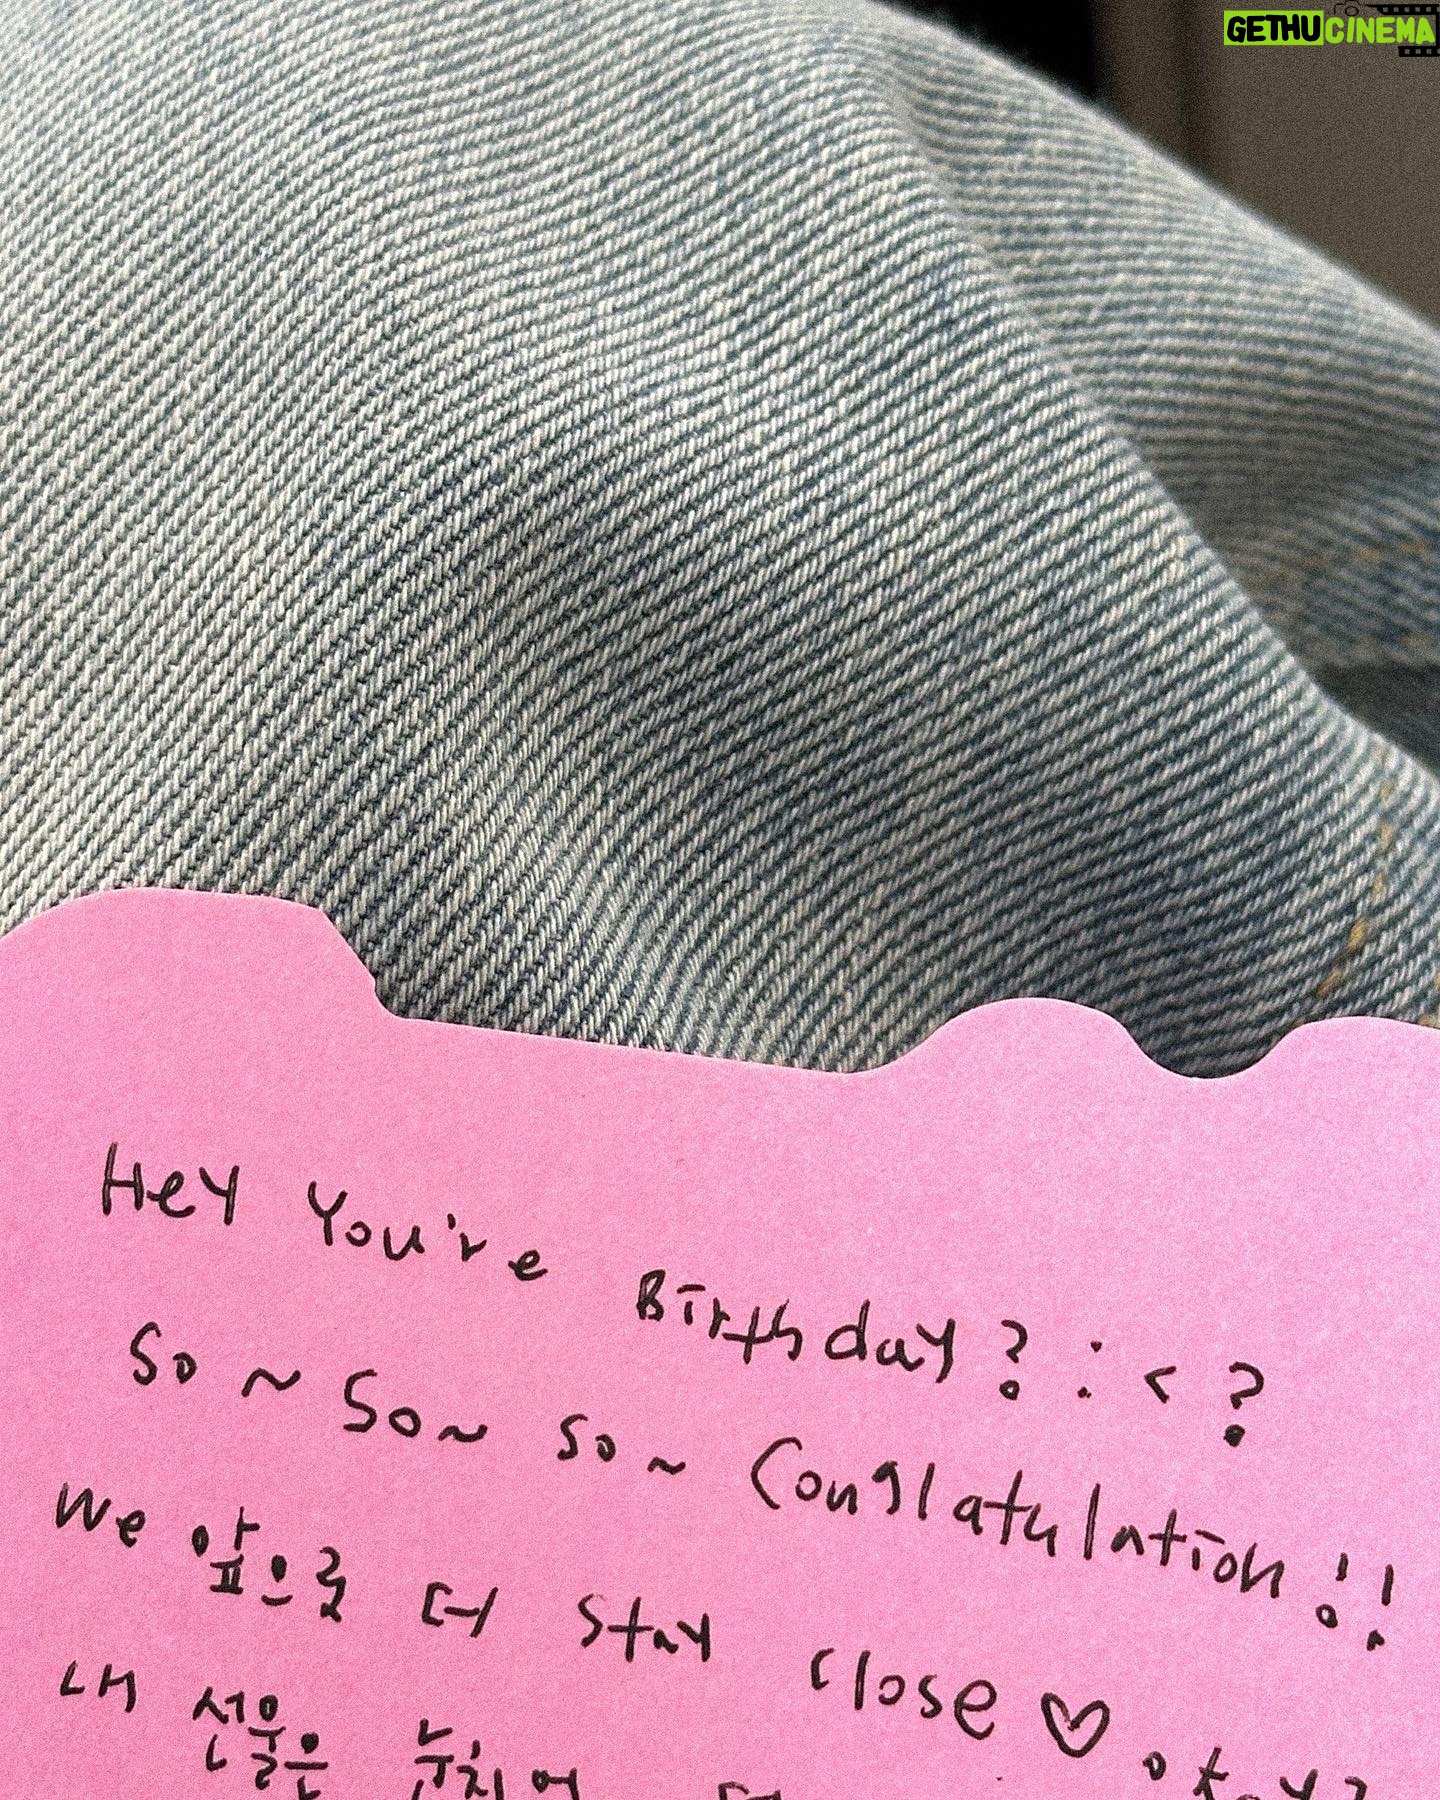 GETHUCINEMA
Hey You're Birthday? :<?
So~ So~ so~ Conglatulation!!
We 앞으로 더 stay close ♡ okay?
내 선물은